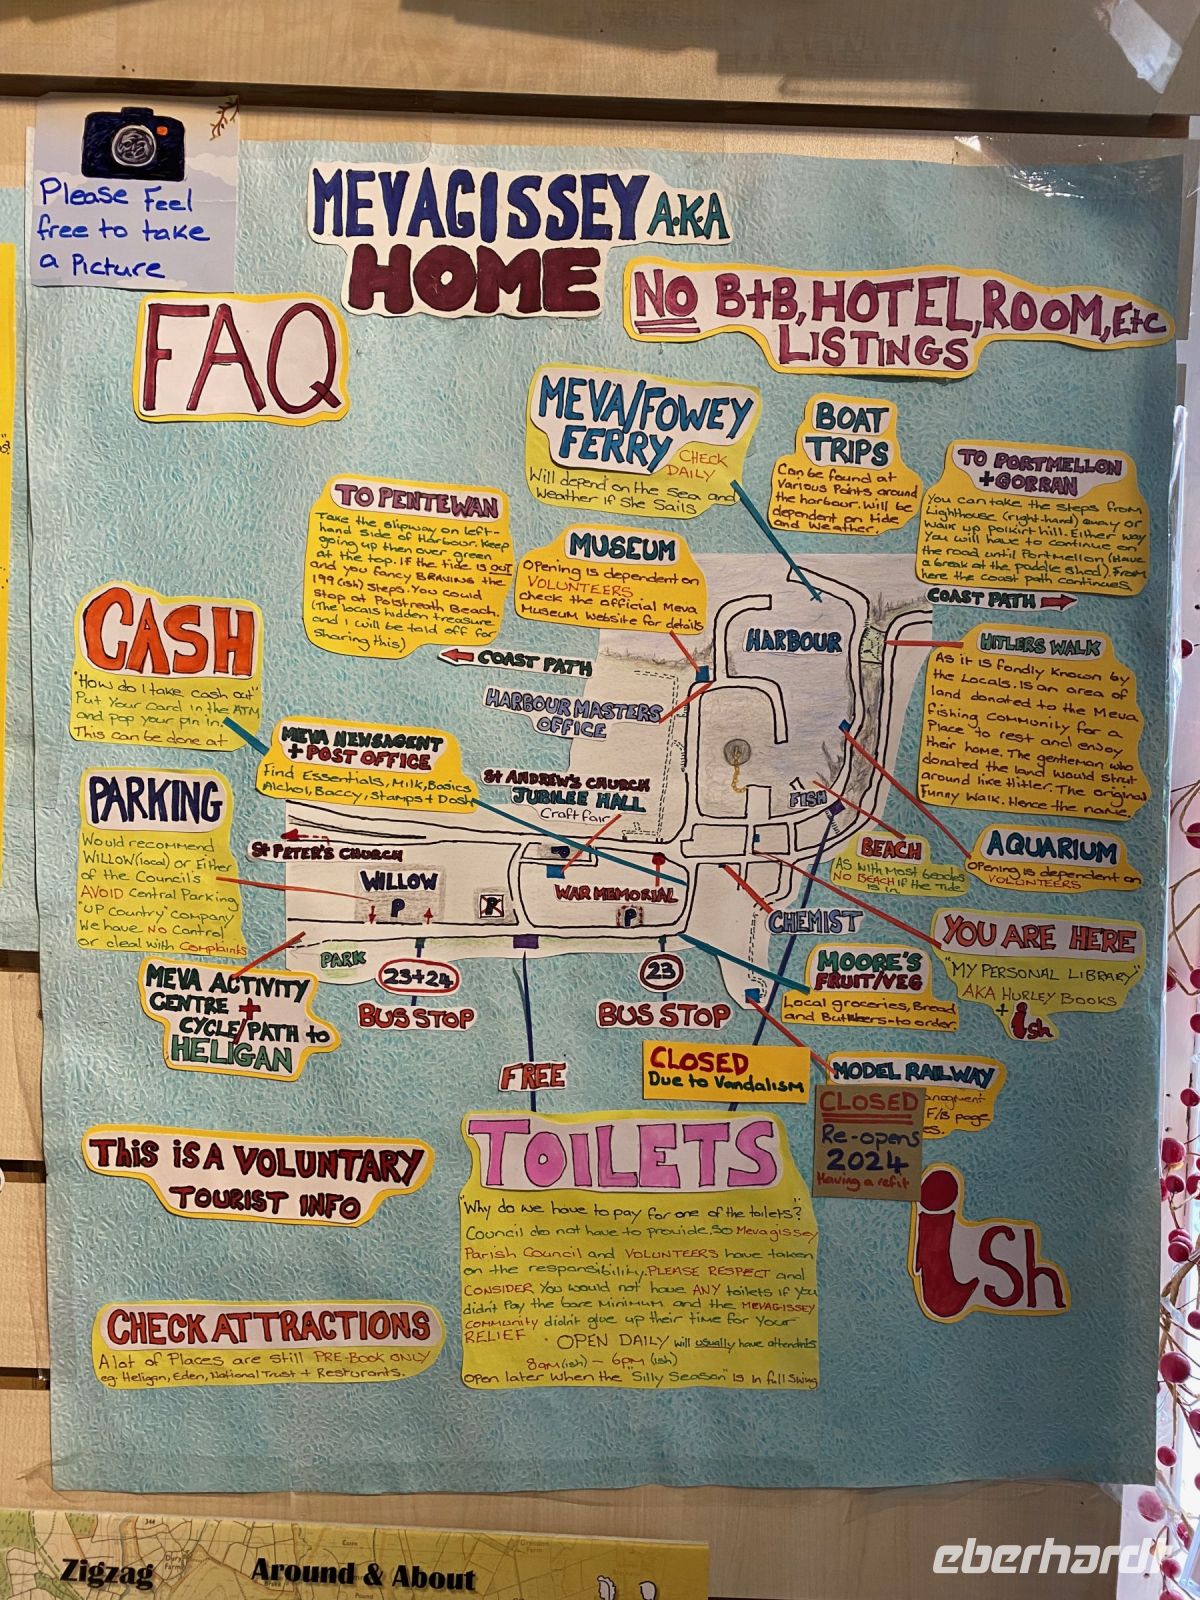 Please Feel
free to take
a Picture
MEVAGISSEY A.K.A
HOME
FAQ
NO B+B, HOTEL, ROOM, Etc
LISTINGS
MEVA/FOWEY
FERRY
CHECK
DAILY
Will depend on the Sea and
Weather if She Sails
BOAT
TRIPS
Can be found at
Various Points around
the harbour. Will be
dependent on tide
and Weather.
TO PORTMELLON
+ GORRAN
You can take the steps from
Lighthouse (right-hand) quay or
walk up polkirt hill. Either way
You will have to continue on
the road until Portmellon (Have
a break at the paddle shed). From
here the coast path continues
COAST PATH
TO PENTEWAN
Take the slipway on left-
hand side of Harbour. Keep
going up then over green
at the top. If the tide is OUT
and you fancy BRAVING the
199 (ish) Steps. You could
Stop at Polstreath Beach.
(The locals hidden treasure
and I will be told off for
Sharing this)
COAST PATH
MUSEUM
Opening is dependent on
VOLUNTEERS
check the official Meva
Museum Website for details
HARBOUR
HARBOUR MASTERS
OFFICE
HITLERS WALK
As it is fondly Known by
the Locals. Is an area of
land donated to the Meva
fishing community for a
Place to rest and enjoy
their home. The gentleman who
donated the land would Strut
around like Hitler. The original
Funny Walk. Hence the name.
CASH
"How do I take cash out"
Put Your Card in the ATM
and pop your pin in.
This can be done at
MEVA NEWSAGENT
+ POST OFFICE
Find Essentials, Milk, Basics
Alchol, Baccy, Stamps + Dosh
ST ANDREW'S CHURCH
JUBILEE HALL
Craft fair
FISH
PARKING
Would recommend
WILLOW (local) or Either
of the Council's
AVOID Central Parking
"UP Country" Company
We have NO Control
or deal with Complaints
ST PETER'S CHURCH
WILLOW
P
P
WAR MEMORIAL
P
BEACH
AS with Most beaches
NO BEACH if the Tide
is in
AQUARIUM
Opening is dependent on
VOLUNTEERS
CHEMIST
YOU ARE HERE
"MY PERSONAL LIBRARY"
AKA HURLEY BOOKS
+ ish
PARK
23+24
BUS STOP
23
BUS STOP
MOORE'S
FRUIT/VEG
Local groceries, Bread
and Butchers-to order.
MEVA ACTIVITY
CENTRE +
CYCLE/PATH to
HELIGAN
FREE
CLOSED
Due to Vandalism
MODEL RAILWAY
F/B page
CLOSED
Re-opens
2024
Having a refit
THIS IS A VOLUNTARY
TOURIST INFO
TOILETS
"Why do we have to pay for one of the toilets?"
Council do not have to provide. So Mevagissey
Parish Council and VOLUNTEERS have taken
on the responsibility. PLEASE RESPECT and
CONSIDER You would not have ANY toilets if you
didn't Pay the bare Minimum and the MEVAGISSEY
COMMUNITY didn't give up their time for Your
RELIEF. OPEN DAILY will usually have attendnts
8am (ish) – 6pm (ish)
Open later when the "Silly Season" is in full Swing
ish
CHECK ATTRACTIONS
A lot of Places are still PRE-BOOK ONLY
eg. Heligan, Eden, National Trust + Resturants.
Zigzag
Around & About
eberhardt